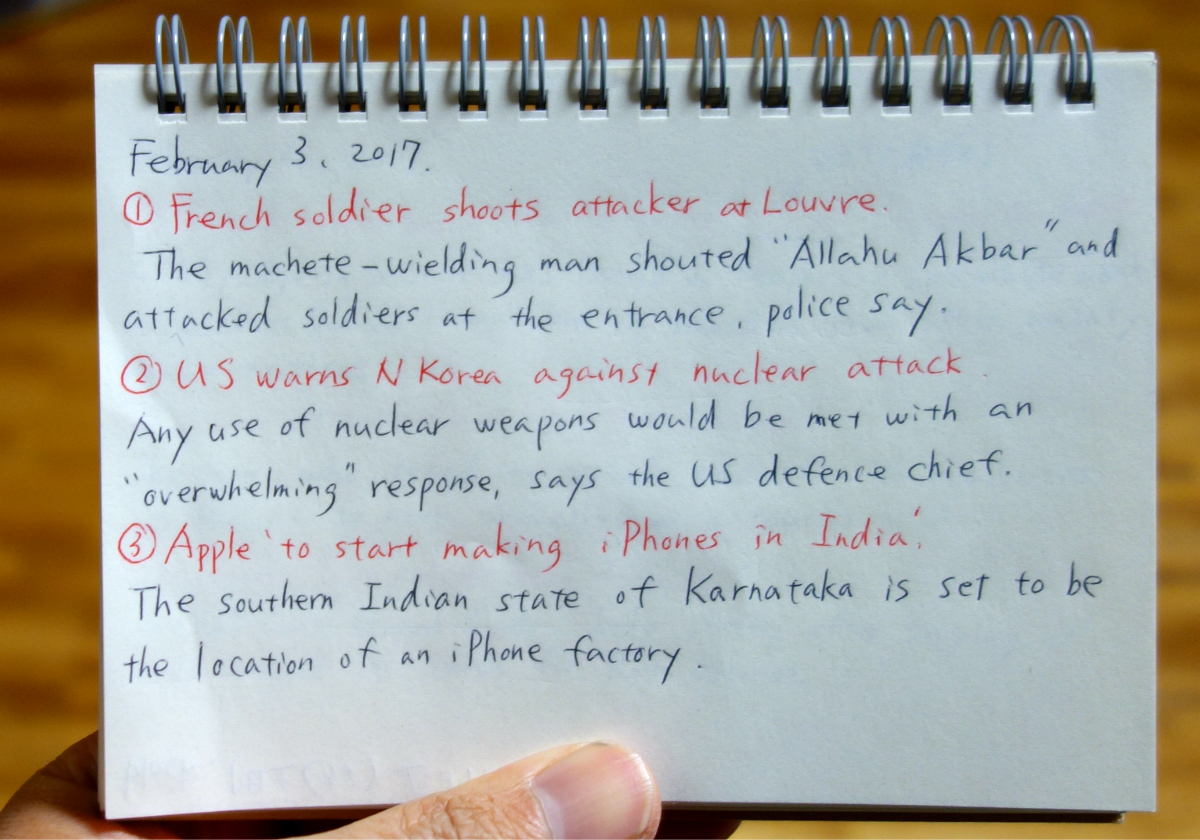 February 3, 2017.
① French soldier shoots attacker at Louvre.
The machete-wielding man shouted "Allahu Akbar" and
attacked soldiers at the entrance, police say.
② US warns N Korea against nuclear attack.
Any use of nuclear weapons would be met with an
"overwhelming" response, says the US defence chief.
③ Apple 'to start making iPhones in India'.
The southern Indian state of Karnataka is set to be
the location of an iPhone factory.